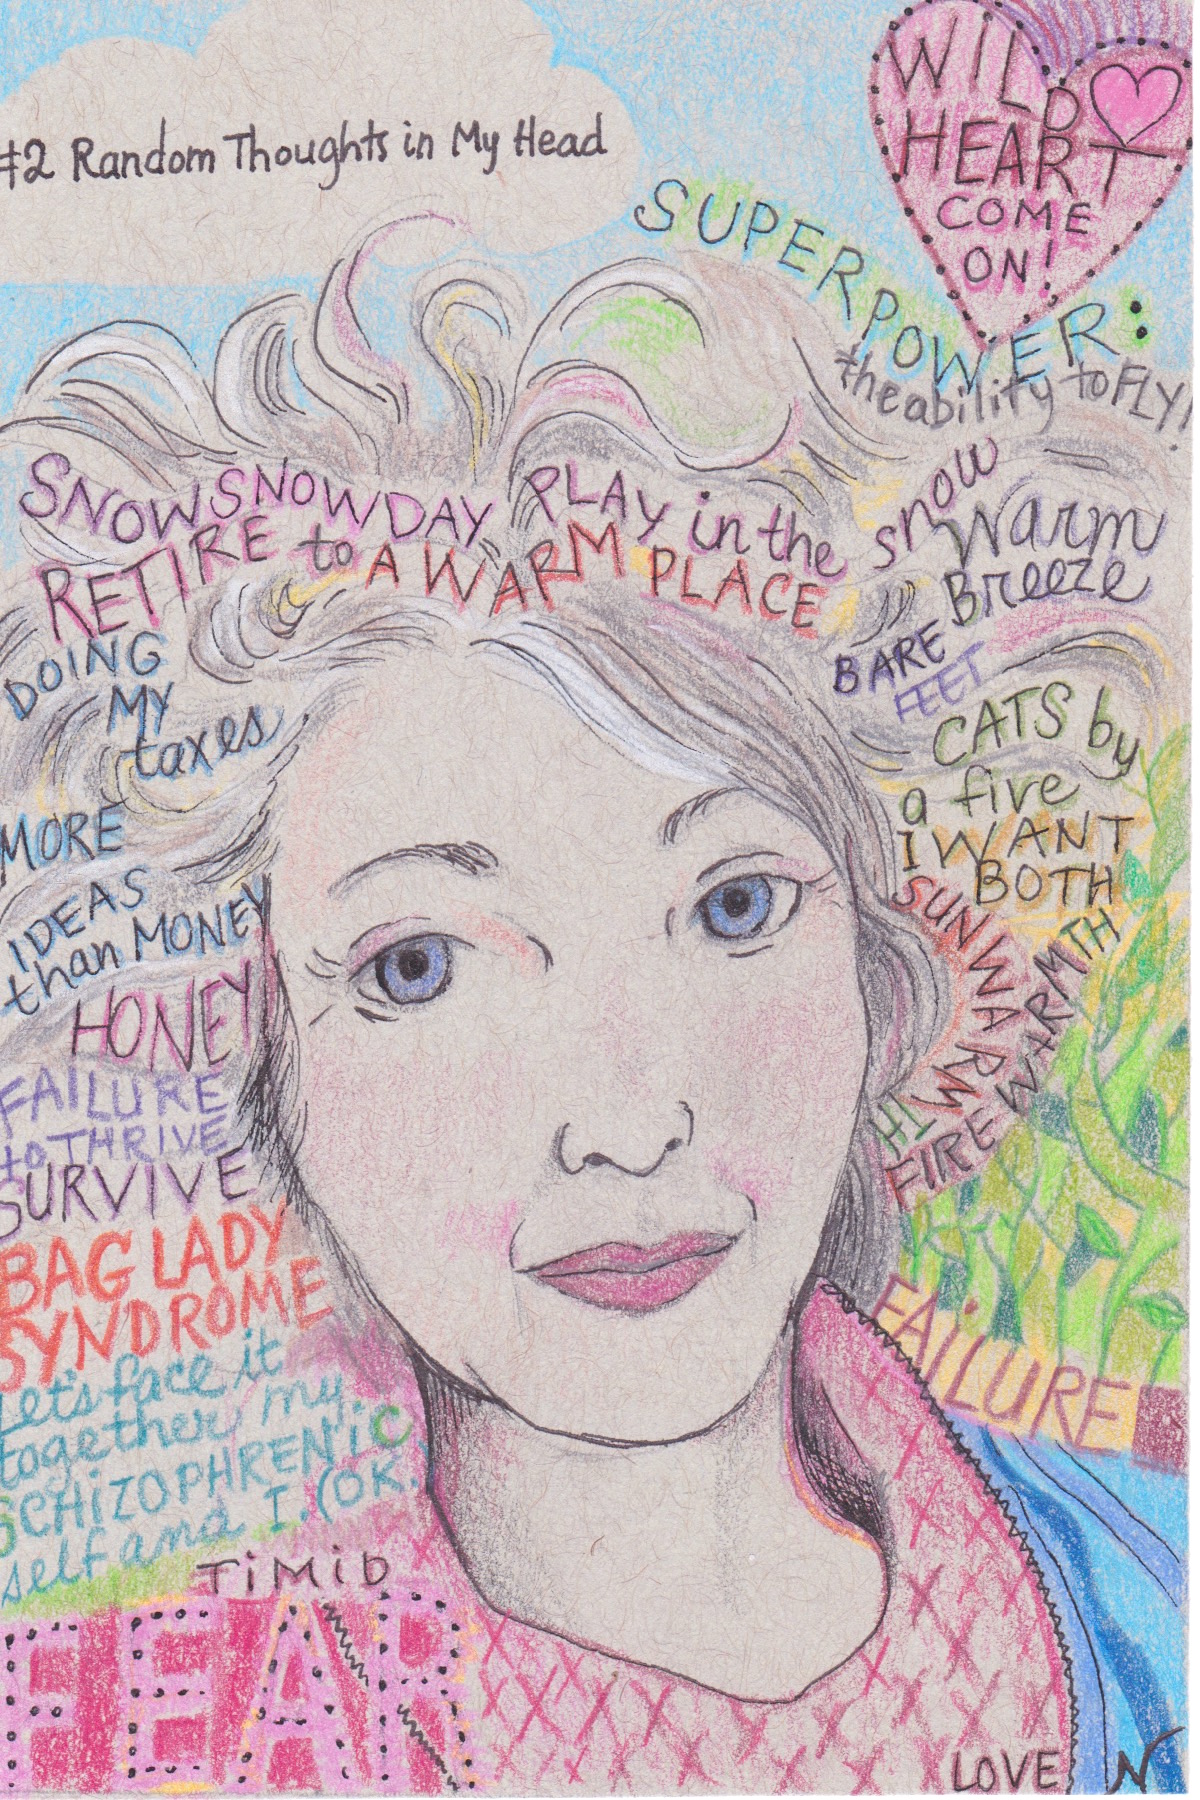 #2 Random Thoughts in My Head
WILD
HEART
COME
ON!
SUPERPOWER:
the ability to FLY!
SNOW SNOW DAY PLAY in the snow
RETIRE to A WARM PLACE
Warm
Breeze
BARE
FEET
CATS by
a five
I WANT
BOTH
SUN WARMTH
FIRE WARMTH
DOING
MY
taxes
MORE
IDEAS
than MONEY
HONEY
FAILURE
to THRIVE
SURVIVE
BAG LADY
SYNDROME
Let's face it
together my
SCHIZOPHRENiC
self and I. (OK.
TiMiD
FEAR
FAiLURE
LOVE N